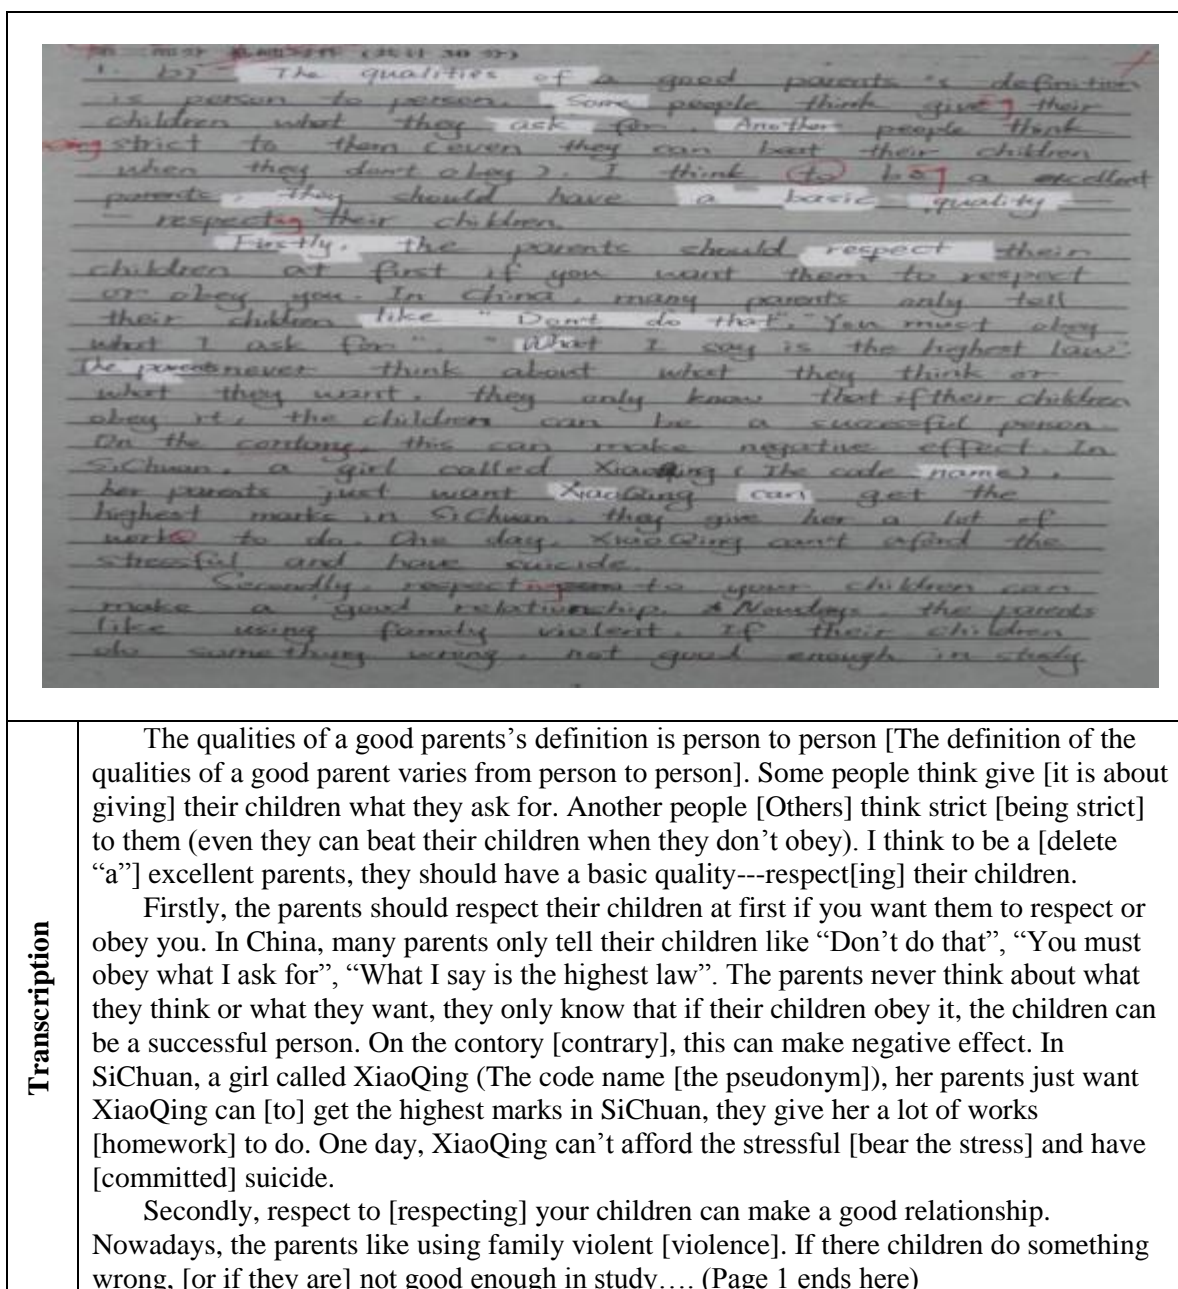 1. b) The qualities of a good parents's definition
is person to person. Some people think giveng their
children what they ask for. Another people think
strict to them (even they can beat their children
when they don't obey). I think to be a excellent
parents, they should have a basic quality
— respecting their children.
Firstly, the parents should respect their
children at first if you want them to respect
or obey you. In China, many parents only tell
their children like "Don't do that", "You must obey
what I ask for", "What I say is the highest law".
The parents never think about what they think or
what they want, they only know that if their children
obey it, the children can be a successful person.
On the contony, this can make negative effect. In
SiChuan, a girl called XiaoQing (The code name),
her parents just want XiaoQing can get the
highest marks in SiChuan, they give her a lot of
works to do. One day, XiaoQing can't aford the
stressful and have suicide.
Secondly respect to your children can
make a good relationship. Nowdays, the parents
like using family violent. If their children
do something wrong, not good enough in study
Transcription
The qualities of a good parents's definition is person to person [The definition of the
qualities of a good parent varies from person to person]. Some people think give [it is about
giving] their children what they ask for. Another people [Others] think strict [being strict]
to them (even they can beat their children when they don't obey). I think to be a [delete
"a"] excellent parents, they should have a basic quality---respect[ing] their children.
Firstly, the parents should respect their children at first if you want them to respect or
obey you. In China, many parents only tell their children like "Don't do that", "You must
obey what I ask for", "What I say is the highest law". The parents never think about what
they think or what they want, they only know that if their children obey it, the children can
be a successful person. On the contory [contrary], this can make negative effect. In
SiChuan, a girl called XiaoQing (The code name [the pseudonym]), her parents just want
XiaoQing can [to] get the highest marks in SiChuan, they give her a lot of works
[homework] to do. One day, XiaoQing can't afford the stressful [bear the stress] and have
[committed] suicide.
Secondly, respect to [respecting] your children can make a good relationship.
Nowadays, the parents like using family violent [violence]. If there children do something
wrong, [or if they are] not good enough in study…. (Page 1 ends here)